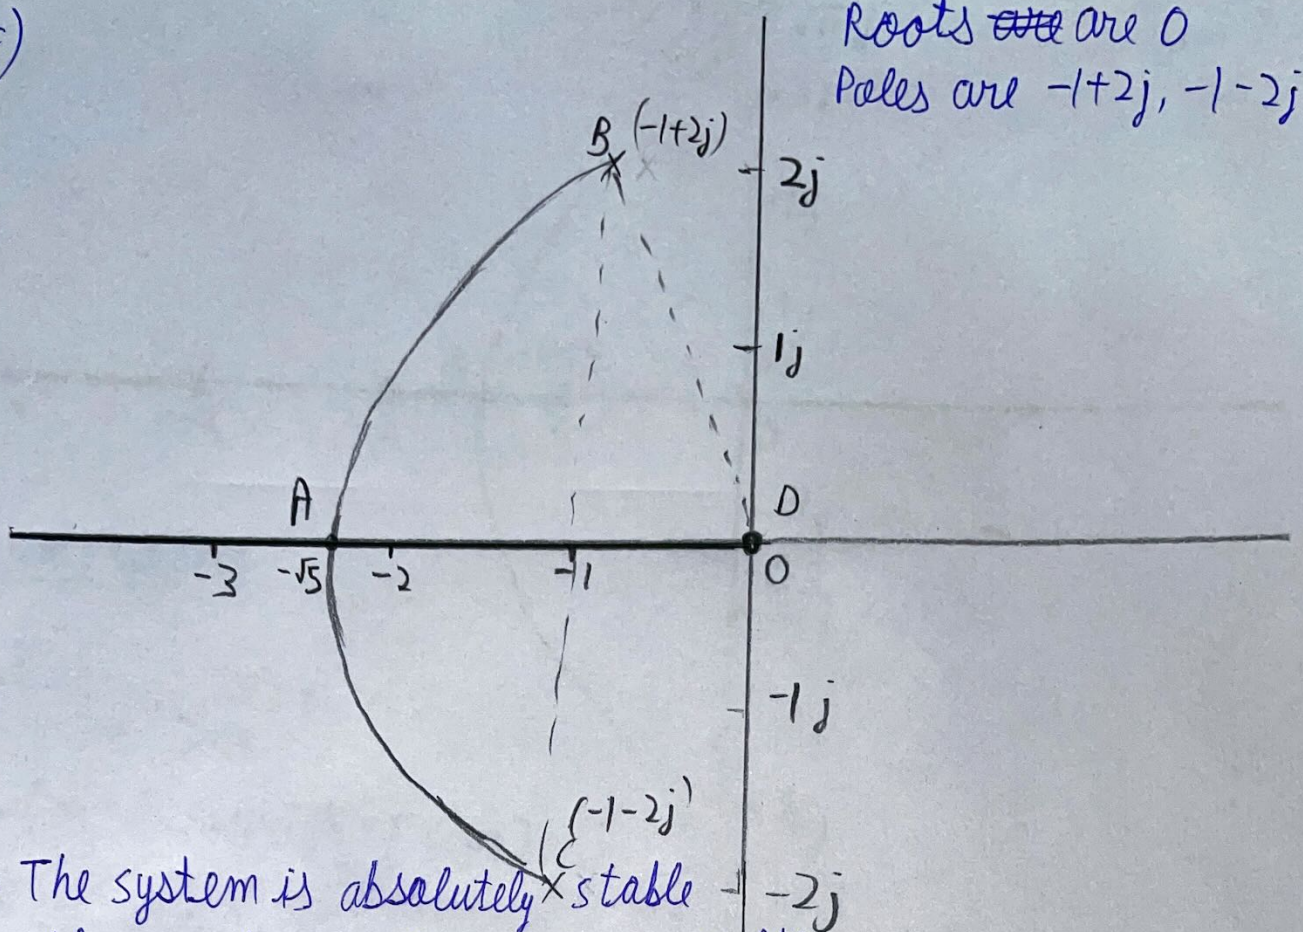 )
Roots are are 0
Poles are -1+2j, -1-2j
B (-1+2j)
2j
1j
A
D
-3 -√5 -2 -1 0
-1j
(-1-2j)
C
The system is absolutely stable
-2j